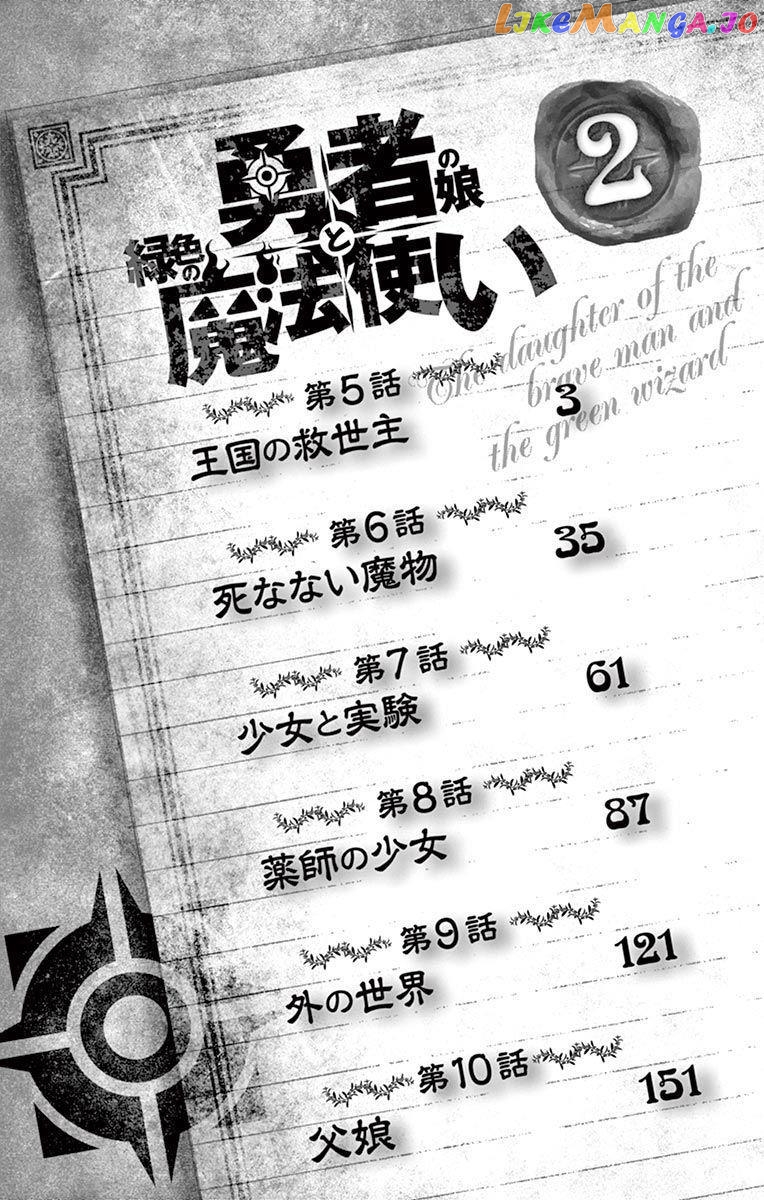 LIKEMANGA.IO
2
勇者の娘
と
緑色の
魔法使い
The daughter of the
brave man and
the green wizard
第5話
王国の救世主 3
第6話
死なない魔物 35
第7話
少女と実験 61
第8話
薬師の少女 87
第9話
外の世界 121
第10話
父娘 151